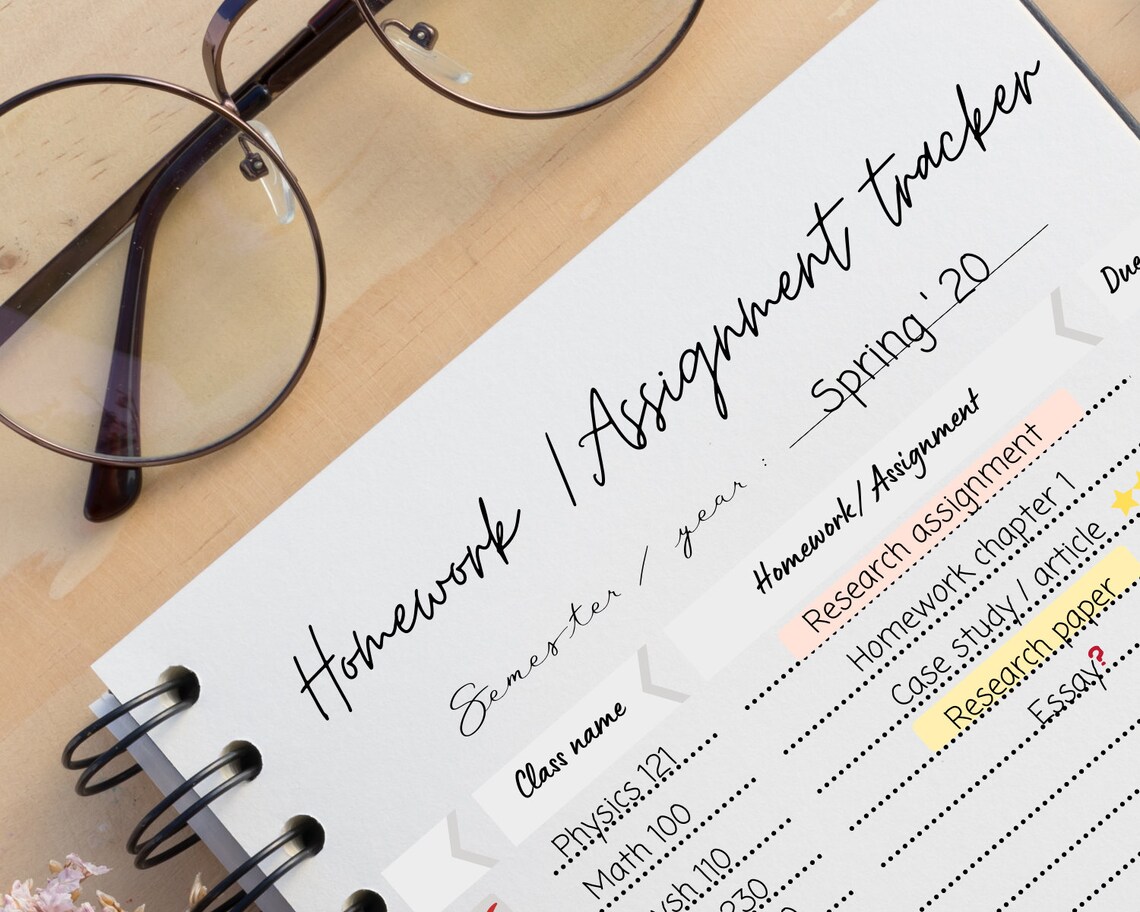 Homework / Assignment tracker
Semester / year : Spring '20
Class name
Homework/Assignment
Due
Physics 121
Research assignment
Math 100
Homework chapter 1
110
Case study / article
230
Research paper
Essay?